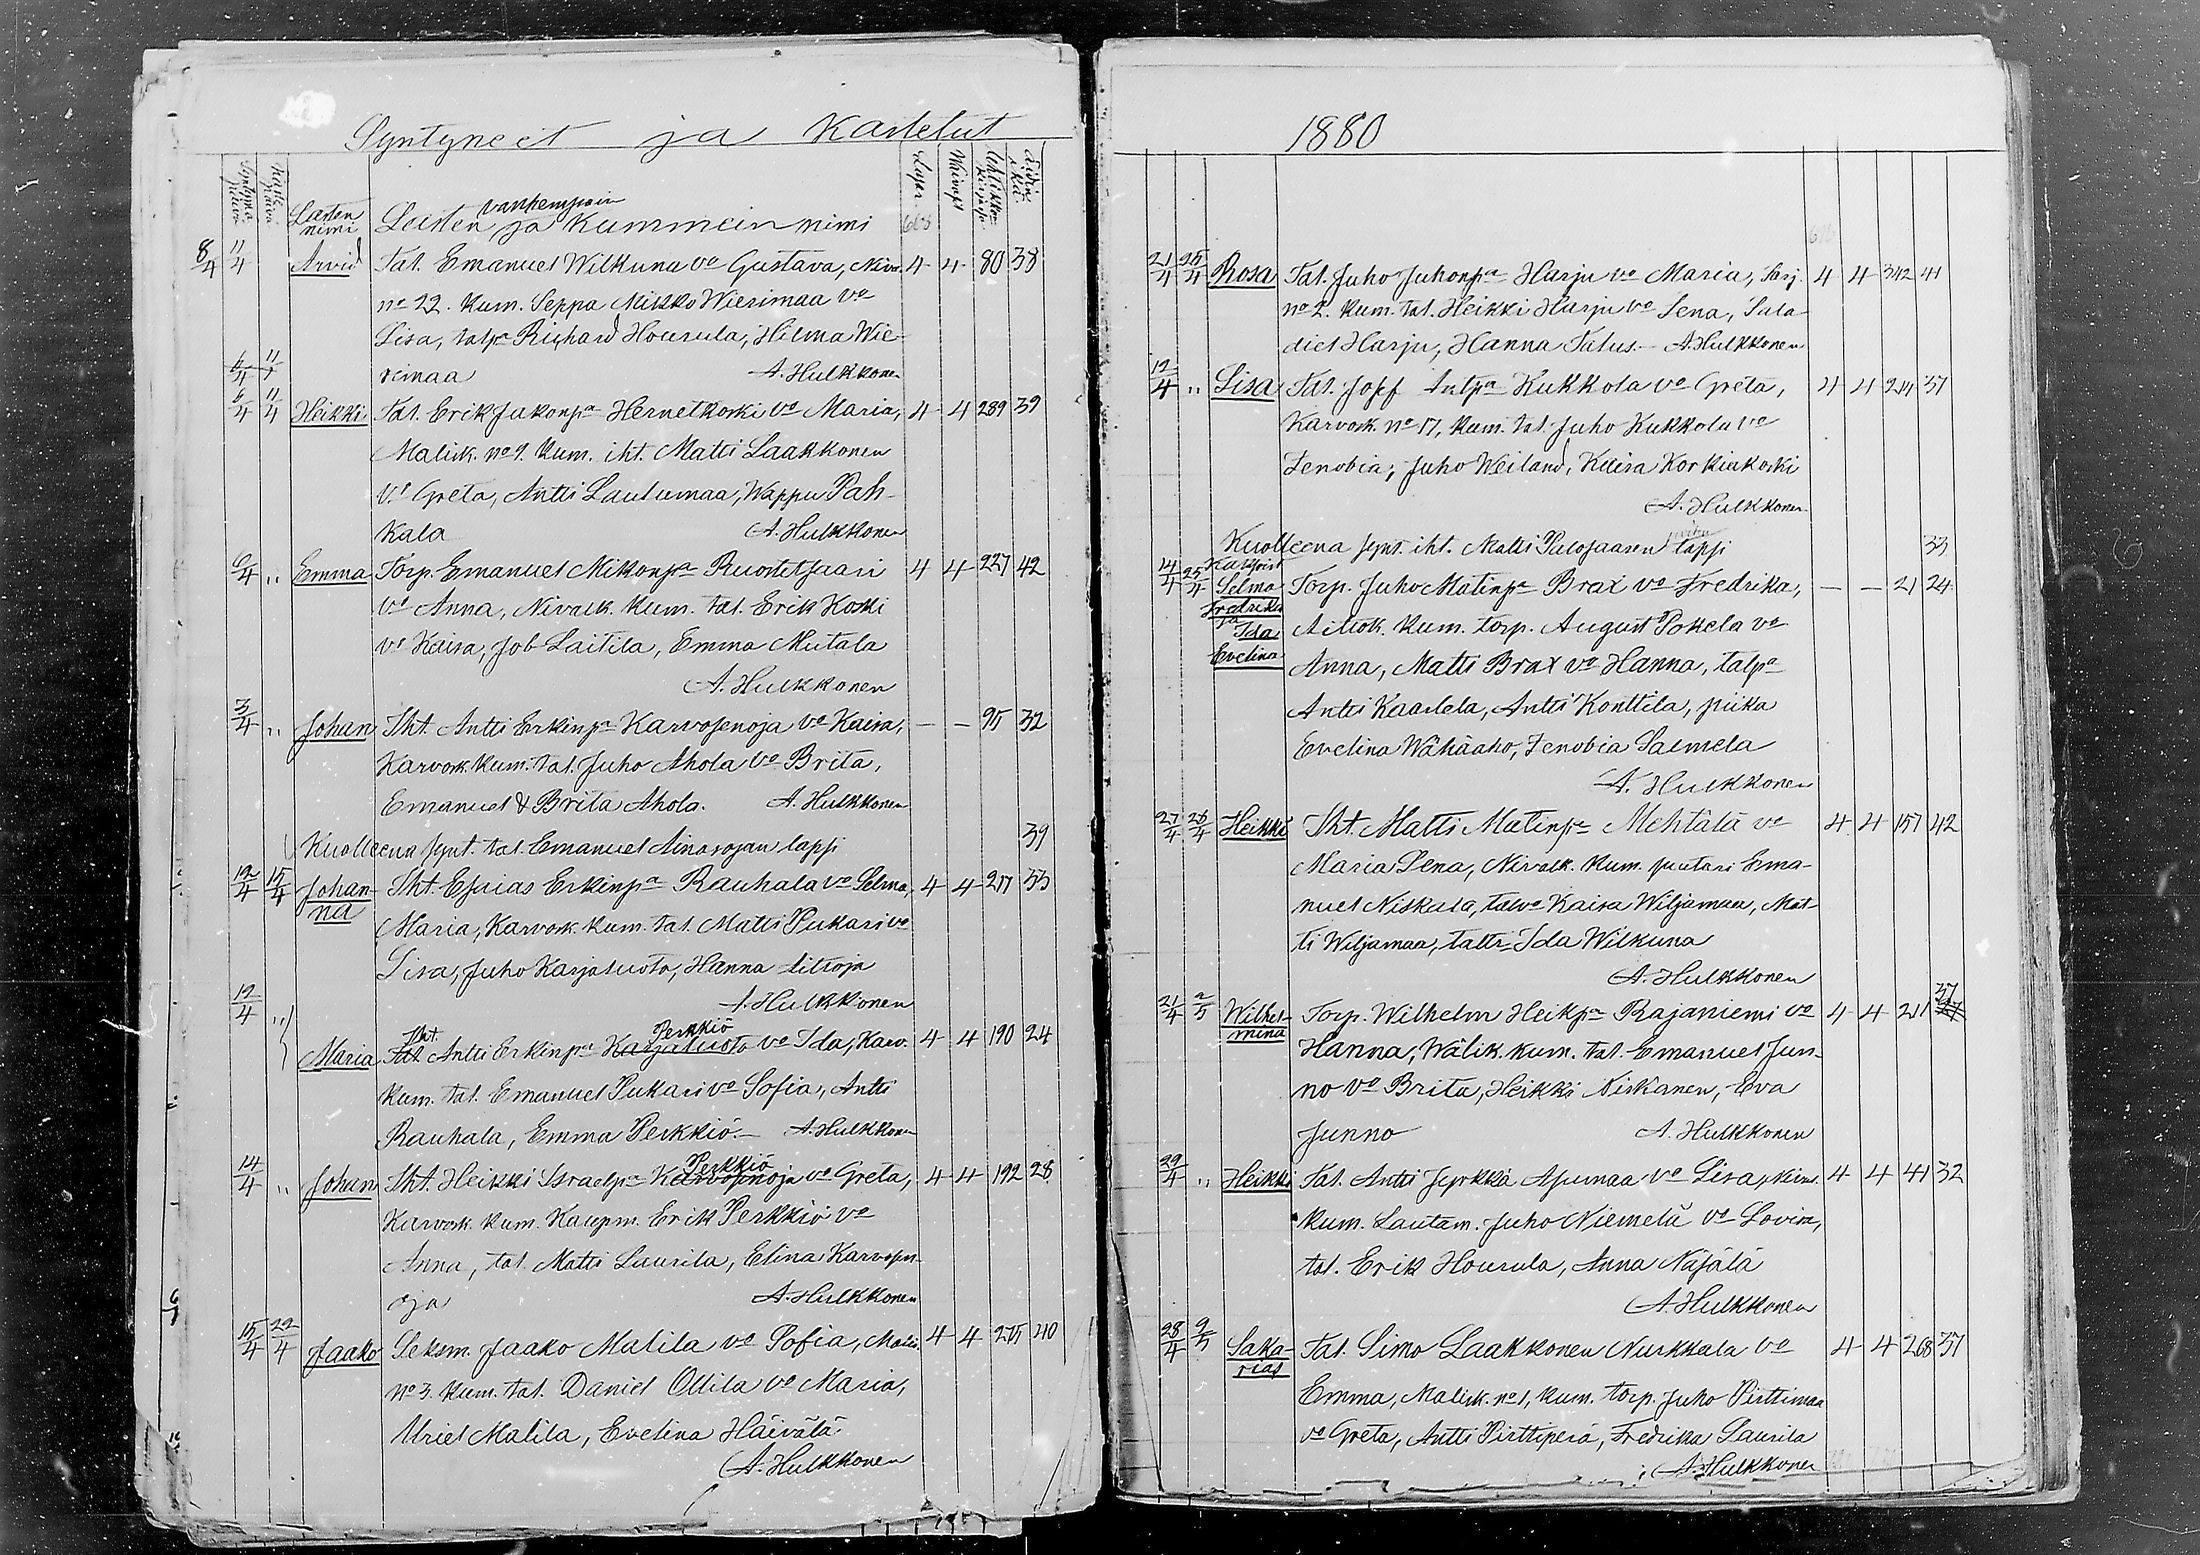 Syntyneet ja Kastetut
Syntymä päivä Kaste päivä Lasten nimi Lasten vanhempain ja Kummein nimi Äidin ikä
8/4 11/4 Arvid Tal. Emanuel Wilkuna vo Gustava, Niva. 4 4 80 38
no 22. Kum. Seppä Mikko Wierimaa vo
Lisa, talpa Richard Hourula, Hilma Wie-
6/4 11/4 rimaa A. Hulkkonen
6/4 11/4 Heikki Tal. Erik Jakonpa Hernetkoski vo Maria, 4 4 289 39
Malisk. no 9. Kum. iht. Matti Laakkonen
vo Greta, Antti Lautumaa, Wappu Pah-
kala A. Hulkkonen
6/4 " Emma Torp. Emanuel Mikonpa Ruostetjaari 4 4 227 42
vo Anna, Nivalk. Kum. tal. Erik Koski
vo Kaisa, Job Laitila, Emma Mutala
A. Hulkkonen
3/4 " Johan Iht. Antti Erkinpa Karvosenoja vo Kaisa, — — 95 32
Karvosk. Kum. tal. Juho Ahola vo Brita,
Emanuel & Brita Ahola. A. Hulkkonen
Kuolleena synt. tal. Emanuel Ainasojan lapsi 39
12/4 15/4 Johan- Iht. Esaias Erkinpa Rauhala vo Selma, 4 4 217 33
na Maria, Karvosk. Kum. tal. Matti Pukari vo
Lisa, Juho Karjaluoto, Hanna Aittoja
12/4 " A. Hulkkonen
Iht. Perkkiö
Maria Tal. Antti Erkinpa Karjaluoto vo Ida, Karv. 4 4 190 24
Kum. tal. Emanuel Pukari vo Sofia, Antti
Rauhala, Emma Perkkiö.— A. Hulkkonen
Perkkiö
14/4 " Johan Iht. Heikki Israelpa Karvosenoja vo Greta, 4 4 192 28
Karvosk. Kum. Kaupm. Erik Perkkiö vo
Anna, tal. Matti Laurila, Elina Karvosen-
oja A. Hulkkonen
15/4 22/4 Jaako Seksm. Jaako Malila vo Sofia, Malis. 4 4 275 40
No 3. Kum. tal. Daniel Ollila vo Maria,
Uriel Malila, Evelina Häivälä
A. Hulkkonen
1880
21/4 25/4 Rosa Tal. Juho Juhonpa Harju vo Maria, Sarj. 4 4 342 41
no 2. Kum. tal. Heikki Harju vo Lena, Sala-
diel Harju, Hanna Salus.— A. Hulkkonen
12/4 " Lisa Tal. Josef Antpa Kukkola vo Greta, 4 4 37
Karvosk. no 17, Kum. tal. Juho Kukkola vo
Zenobia, Juho Weiland, Kaisa Korkiakoski
A. Hulkkonen
Kuolleena synt. iht. Matti Palosaaren lapsi 33
Kaksoist
14/4 25/4 Selma Torp. Juho Matinpa Brax vo Fredrika, — — 21 24
Fredrika
ja
Ida Aittok. Kum. torp. August Pokela vo
Evelina Anna, Matti Brax vo Hanna, talpa
Antti Kaarlela, Antti Konttila, piika
Evelina Wähäaho, Zenobia Salmela
A. Hulkkonen
27/4 28/4 Heikki Iht. Matti Matinpa Mehtälä vo 4 4 157 42
Maria Lena, Nivalk. Kum. puutari Ema-
nuel Niskala, talvo Kaisa Wiljamaa, Mat-
ti Wiljamaa, taltr Ida Wilkuna
A. Hulkkonen
21/4 2/5 Wilhel- Torp. Wilhelm Heikpa Rajaniemi vo 4 4 211 37
mina Hanna, Wälik. Kum. tal. Emanuel Jun-
no vo Brita, Heikki Niskanen, Eva
Junno A. Hulkkonen
29/4 " Heikki Tal. Antti Jyrkkä Apumaa vo Lisa, 4 4 41 32
Kum. Lautam. Juho Niemelä vo Lovisa,
tal. Erik Hourula, Anna Näsälä
A. Hulkkonen
28/4 9/5 Saka- Tal. Simo Laakkonen Nurkkala vo 4 4 268 37
rias Emma, Malisk. no 1, Kum. torp. Juho Pirttimaa
vo Greta, Antti Pirttiperä, Fredrika Laurila
A. Hulkkonen